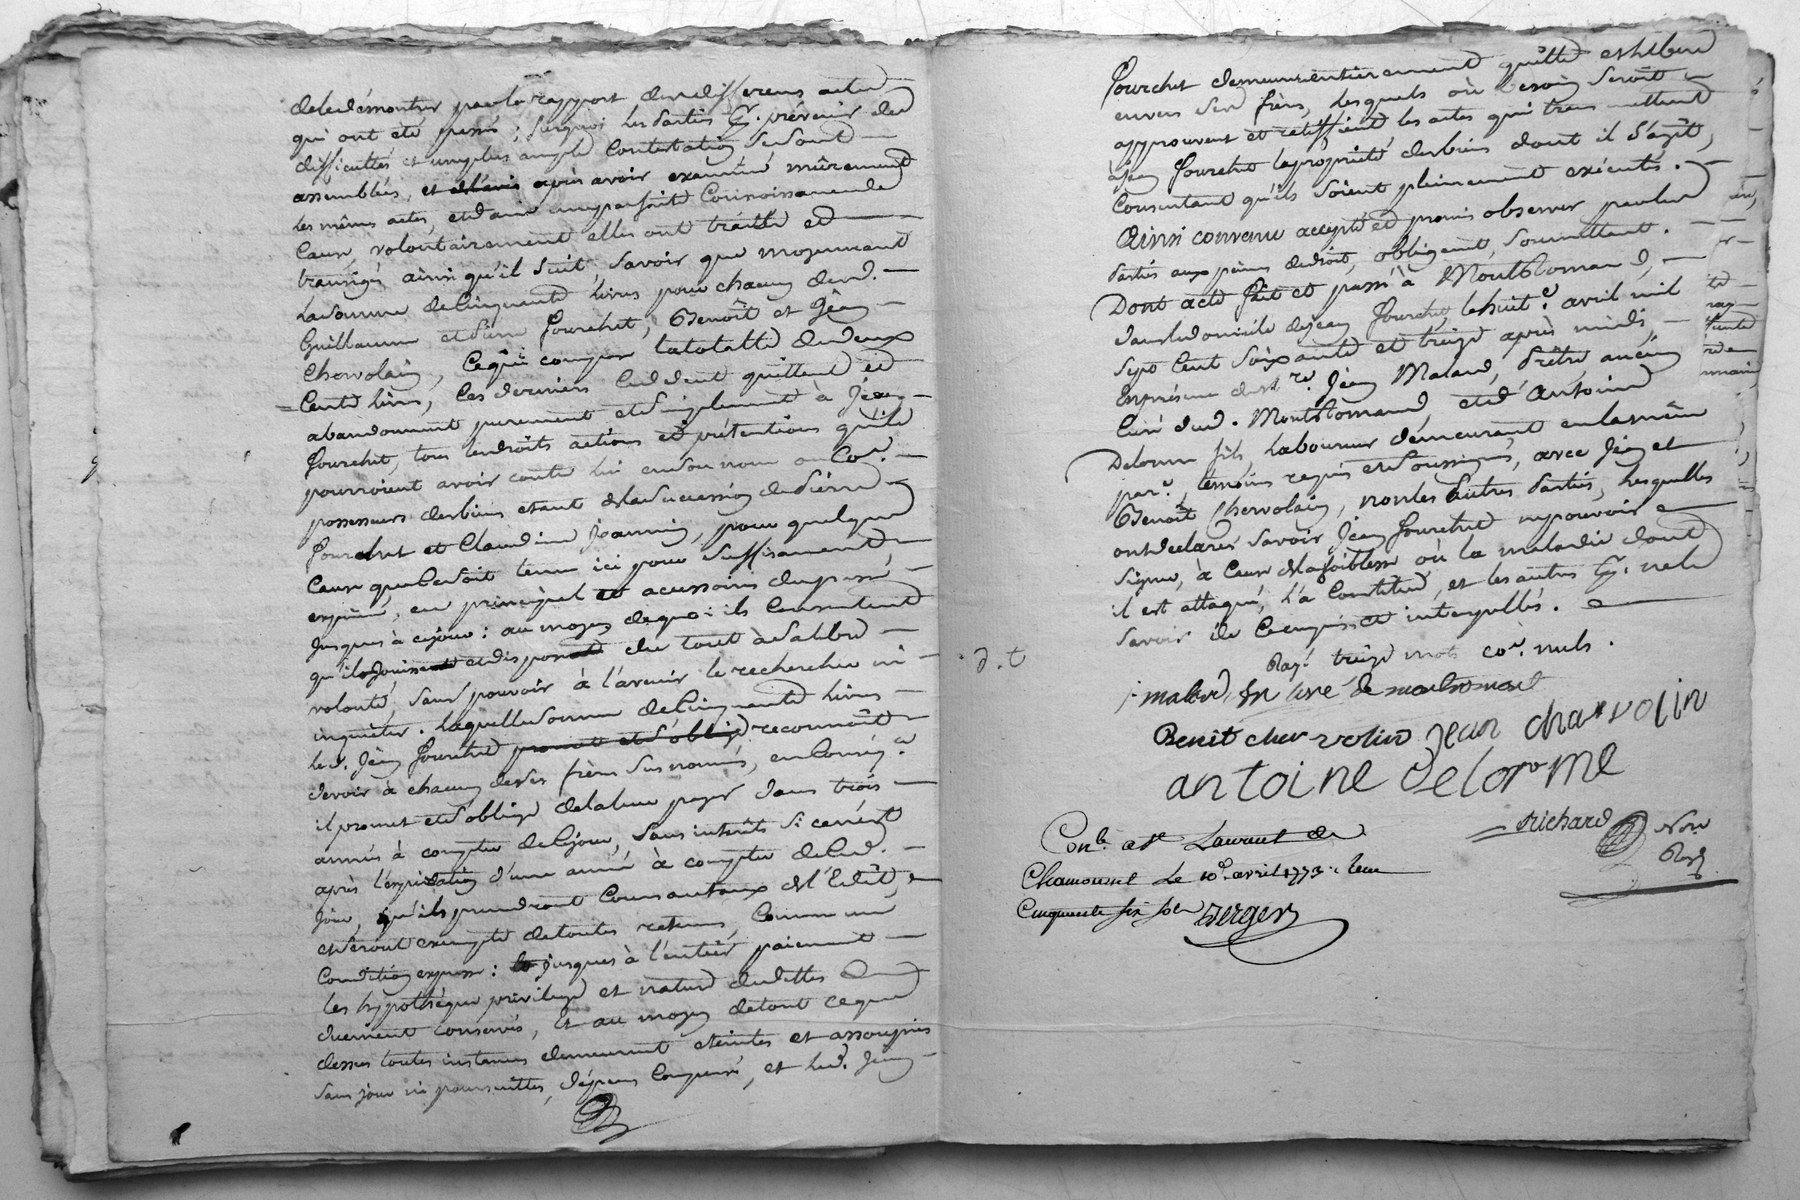 de le démontrer par le rapport des differens actes
qui ont été passés ; surquoi les parties pr. prévenir des
difficultés et une plus ample contestation se sont
assemblées, et après avoir examiné mûrement
les mêmes actes, et d'une parfaite connoissance de
cause, volontairement elles ont traité et
transigé ainsi qu'il suit, savoir que moyennant
la somme de cinquante livres pour chacun desd.
Guillaume et Pierre Fourchet, Benoît et Jean
Chervolain, ce qui compose la totalité de deux
cents livres, ces derniers cèdent quittent et
abandonnent purement et simplement à Jean
Fourchet, tous les droits actions et prétentions qu'ils
pourroient avoir contre lui en son nom ou coe.
possesseurs des biens étant de la succession de Pierre
Fourchet et Claudine Joannin, pour quelque
cause que ce soit tenue ici pour suffisament
exprimé, en principal et accessoires du passé
jusques à ce jour : au moyen de quoi ils consentent
qu'il jouisse et dispose du tout à sa libre
volonté, sans pouvoir à l'avenir le rechercher ni
inquieter. laquelle somme de cinquante livres
led. Jean Fourchet promet et s'oblige reconnoît
devoir à chacun de ses frères susnommés, en conséqce.
il promet et s'oblige de la leur payer dans trois
années à compter de ce jour, sans intérêts si ce n'est
après l'expiration d'une année à compter de ced.
jour, qu'ils prendront cours au taux de l'Edit,
et seront exempts de toutes retenues, comme une
condition expresse : jusques à l'entier paiement
les hypothèque privilege et nature de dettes
demeurent conservés, et au moyen de tout ce que
dessus toutes instances demeurent éteintes et assoupies
sans jour ni poursuittes, dépens compensés, et led. Jean
Fourchet demeure entièrement quitte et libéré
envers ses frères, lesquels où besoin seroit
approuvent et ratiffient les actes qui transmettent
à Jean Fourchet la propriété des biens dont il s'agît,
consentant qu'ils soient pleinement exécutés.
Ainsi convenu accepté et promis observer par les
parties aux peines de droit, obligeant, soumettant.
Dont acte fait et passé à Montromand,
dans le domicile de Jean Fourchet, le huite. avril mil
sept cent soixante et treize après midi,
en présence de Mre. Jean Maland, Prêtre ancien
curé dud. Montromand, et d'Antoine
Delorme fils, laboureur demeurant en la même
pare. témoins requis et soussignés, avec Jean et
Benoît Chervolain, non les autres parties, lesquelles
ont declaré savoir Jean Fourchet ne pouvoir
signer, à cause de la foiblesse où la maladie dont
il est attaqué, l'a constitué, et les autres pr. ne le
savoir de ce enquis et interpellés.
Rayé treize mots coe. nuls.
d.t
maland an curé de montromant
Benit cher volin Jean chervolin
antoine Delorme
Richard Nore
Royl
Conlé. a St Laurent de
Chamousset le 10e. avril 1773. Reçu
Cinquante six sols Berger